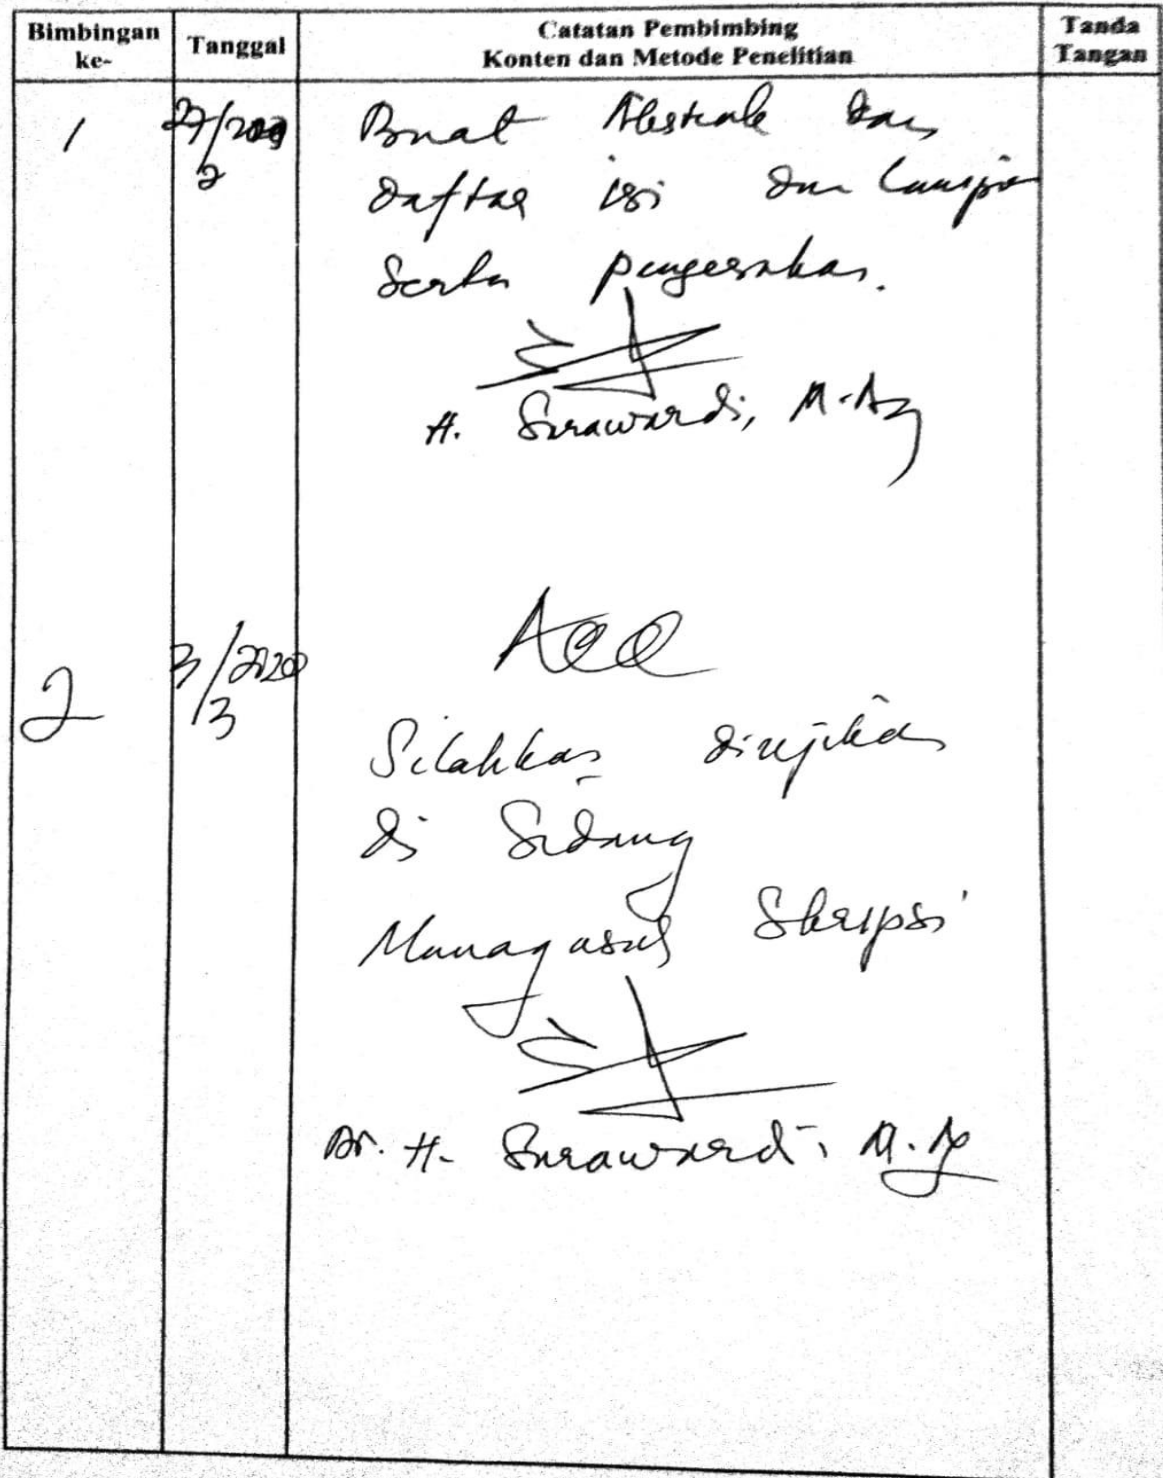 Bimbingan ke-
Tanggal
Catatan Pembimbing
Konten dan Metode Penelitian
Tanda Tangan
1
27/2020
2
Buat Abstrak dan
daftar isi dan
Serta
H. Surawardi, M.Ag
2
3/2020
3
Acc
Silahkan diujikan
di Sidang
Munaqasah Skripsi
Dr. H. Surawardi, M.Ag